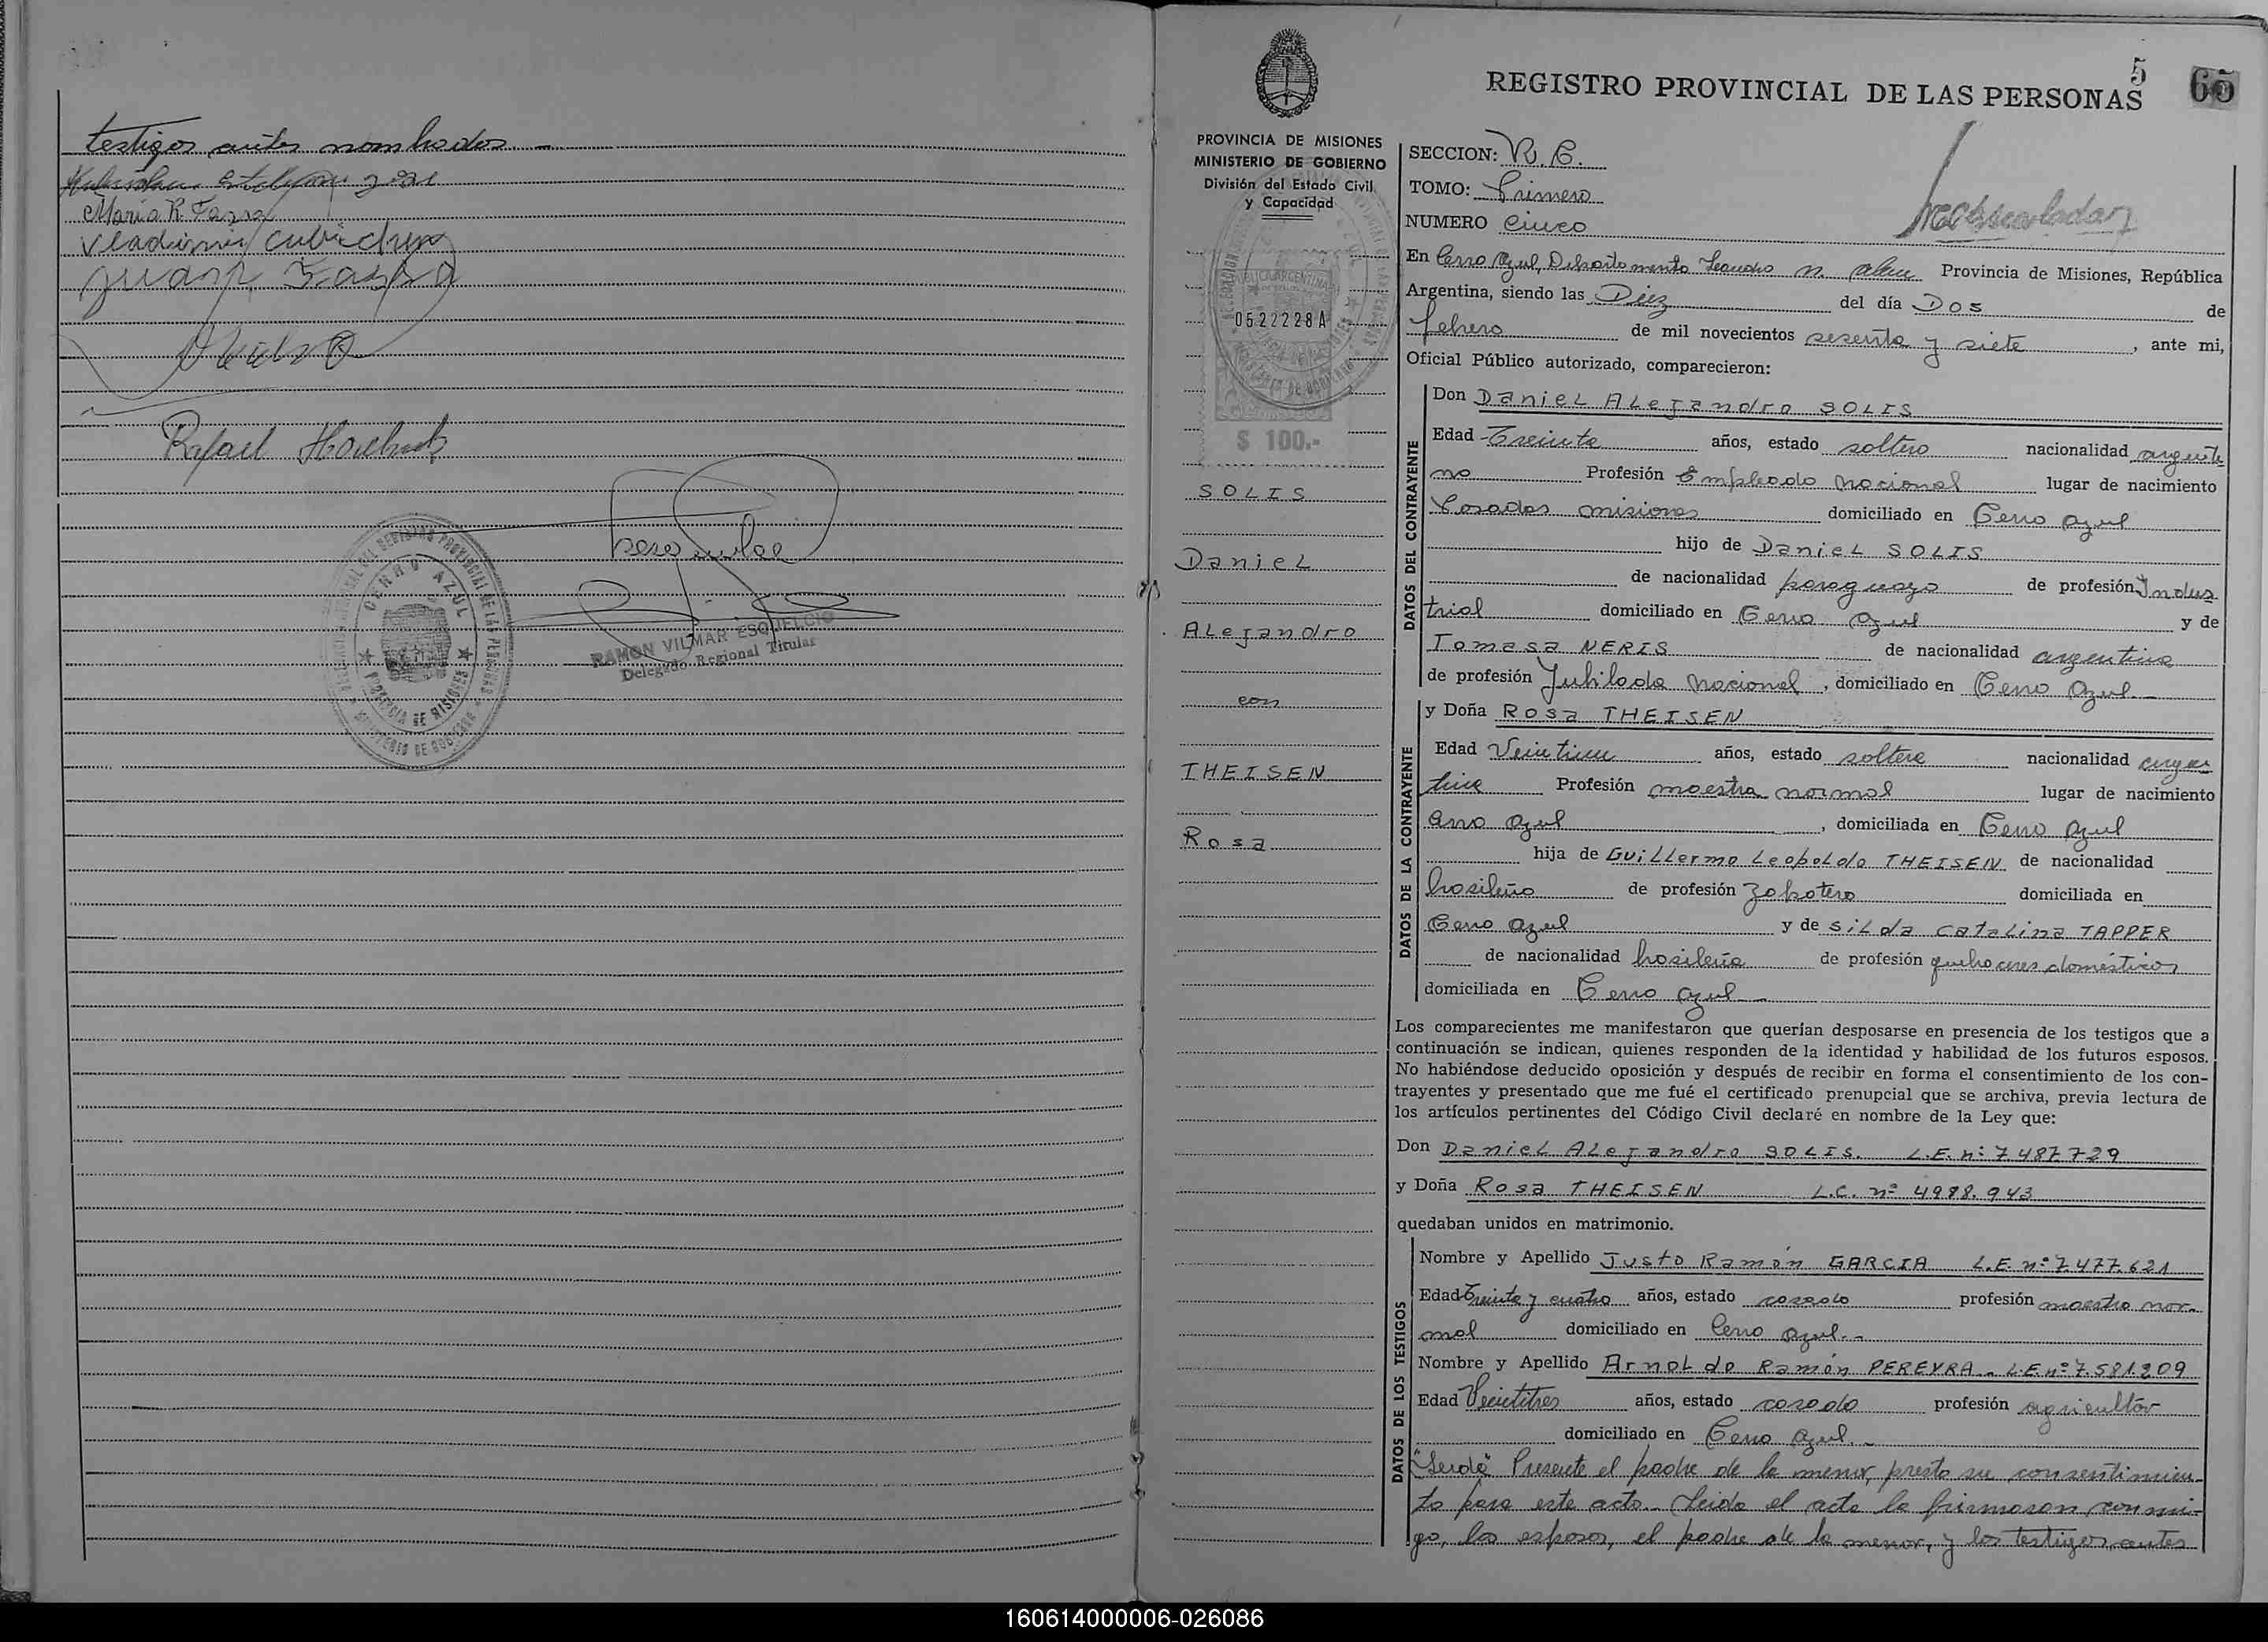 testigos antes nombrados -
María R. Tazza
Vladimir
Juan
Rafael
CERRO AZUL
PROVINCIA DE MISIONES
RAMON VILMAR ESQUELCIO
Delegado Regional Titular
5
65
REGISTRO PROVINCIAL DE LAS PERSONAS
PROVINCIA DE MISIONES
MINISTERIO DE GOBIERNO
División del Estado Civil
y Capacidad
0522228A
$ 100.-
SOLIS
Daniel
Alejandro
con
THEISEN
Rosa
SECCION:
TOMO: Primero
NUMERO Cinco
En Cerro Azul, Departamento Leandro N. Alem Provincia de Misiones, República
Argentina, siendo las Diez del día Dos de
febrero de mil novecientos sesenta y siete, ante mi,
Oficial Público autorizado, comparecieron:
DATOS DEL CONTRAYENTE
Don Daniel Alejandro SOLIS
Edad Treinta años, estado soltero nacionalidad argenti
no Profesión Empleado Nacional lugar de nacimiento
Posadas Misiones domiciliado en Cerro Azul
hijo de Daniel SOLIS
de nacionalidad paraguayo de profesión Indus
trial domiciliado en Cerro Azul y de
Tomasa NERIS de nacionalidad argentina
de profesión Jubilada Nacional, domiciliado en Cerro Azul.-
DATOS DE LA CONTRAYENTE
y Doña Rosa THEISEN
Edad Veintiun años, estado soltera nacionalidad argen
tina Profesión maestra normal lugar de nacimiento
Cerro Azul, domiciliada en Cerro Azul
hija de Guillermo Leopoldo THEISEN de nacionalidad
brasileño de profesión Zapatero domiciliada en
Cerro Azul y de Silda Catalina TAPPER
de nacionalidad brasileña de profesión quehaceres domésticos
domiciliada en Cerro Azul.-
Los comparecientes me manifestaron que querían desposarse en presencia de los testigos que a
continuación se indican, quienes responden de la identidad y habilidad de los futuros esposos.
No habiéndose deducido oposición y después de recibir en forma el consentimiento de los con-
trayentes y presentado que me fué el certificado prenupcial que se archiva, previa lectura de
los artículos pertinentes del Código Civil declaré en nombre de la Ley que:
Don Daniel Alejandro SOLIS. L.E. nº 7487729
y Doña Rosa THEISEN L.C. nº 4998.943
quedaban unidos en matrimonio.
DATOS DE LOS TESTIGOS
Nombre y Apellido Justo Ramón GARCIA L.E. nº 7.477.621
Edad Treinta y cuatro años, estado casado profesión maestro nor-
mal domiciliado en Cerro Azul.-
Nombre y Apellido Arnoldo Ramón PEREYRA - L.E. nº 7.581.209
Edad Veintitres años, estado casado profesión agricultor
domiciliado en Cerro Azul.-
Presente el padre de la menor, presta su consentimien-
to para este acto.- Leida el acta la firmaron conmi-
go, los esposos, el padre de la menor, y los testigos antes
160614000006-026086